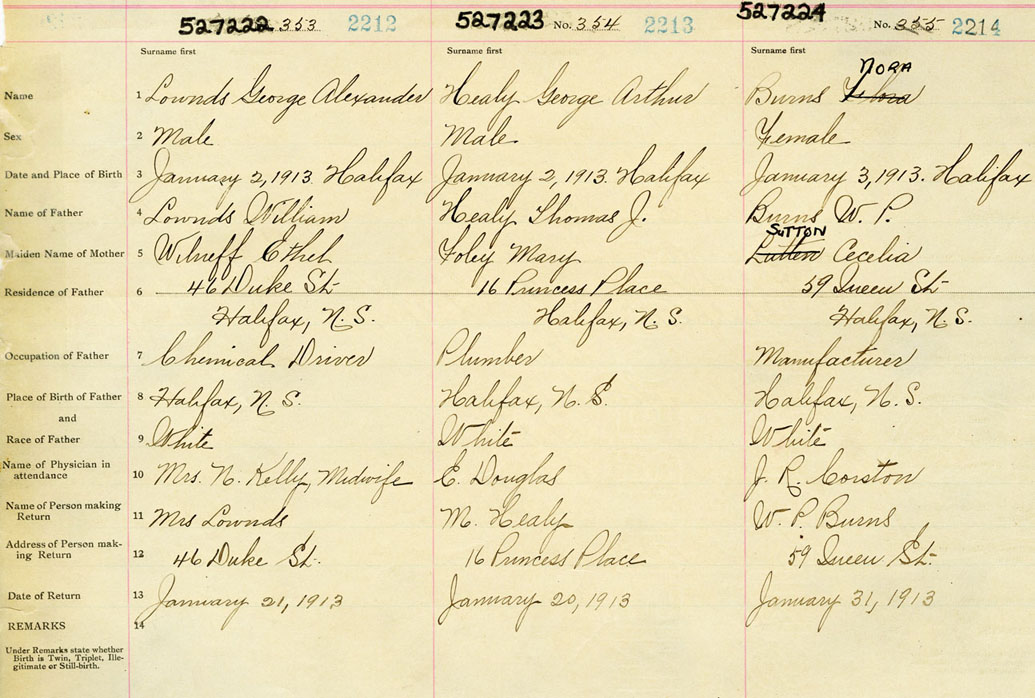 527222 353 2212 527223 No. 354 2213 527224 No. 355 2214
Surname first Surname first Surname first
NORA
Name 1 Lownds George Alexander Healy George Arthur Burns Flora
Sex 2 Male Male Female
Date and Place of Birth 3 January 2, 1913. Halifax January 2, 1913. Halifax January 3, 1913. Halifax
Name of Father 4 Lownds William Healy Thomas J. Burns W. P.
SUTTON
Maiden Name of Mother 5 Wilneff Ethel Foley Mary Lutten Cecelia
Residence of Father 6 46 Duke St. 16 Princess Place 59 Queen St.
Halifax, N. S. Halifax, N. S. Halifax, N. S.
Occupation of Father 7 Chemical Driver Plumber Manufacturer
Place of Birth of Father 8 Halifax, N. S. Halifax, N. S. Halifax, N. S.
and
Race of Father 9 White White White
Name of Physician in
attendance 10 Mrs. N. Kelly, Midwife E. Douglas J. R. Corston
Name of Person making
Return 11 Mrs Lownds M. Healy W. P. Burns
Address of Person mak-
ing Return 12 46 Duke St. 16 Princess Place 59 Queen St.
Date of Return 13 January 21, 1913 January 20, 1913 January 31, 1913
REMARKS 14
Under Remarks state whether
Birth is Twin, Triplet, Ille-
gitimate or Still-birth.